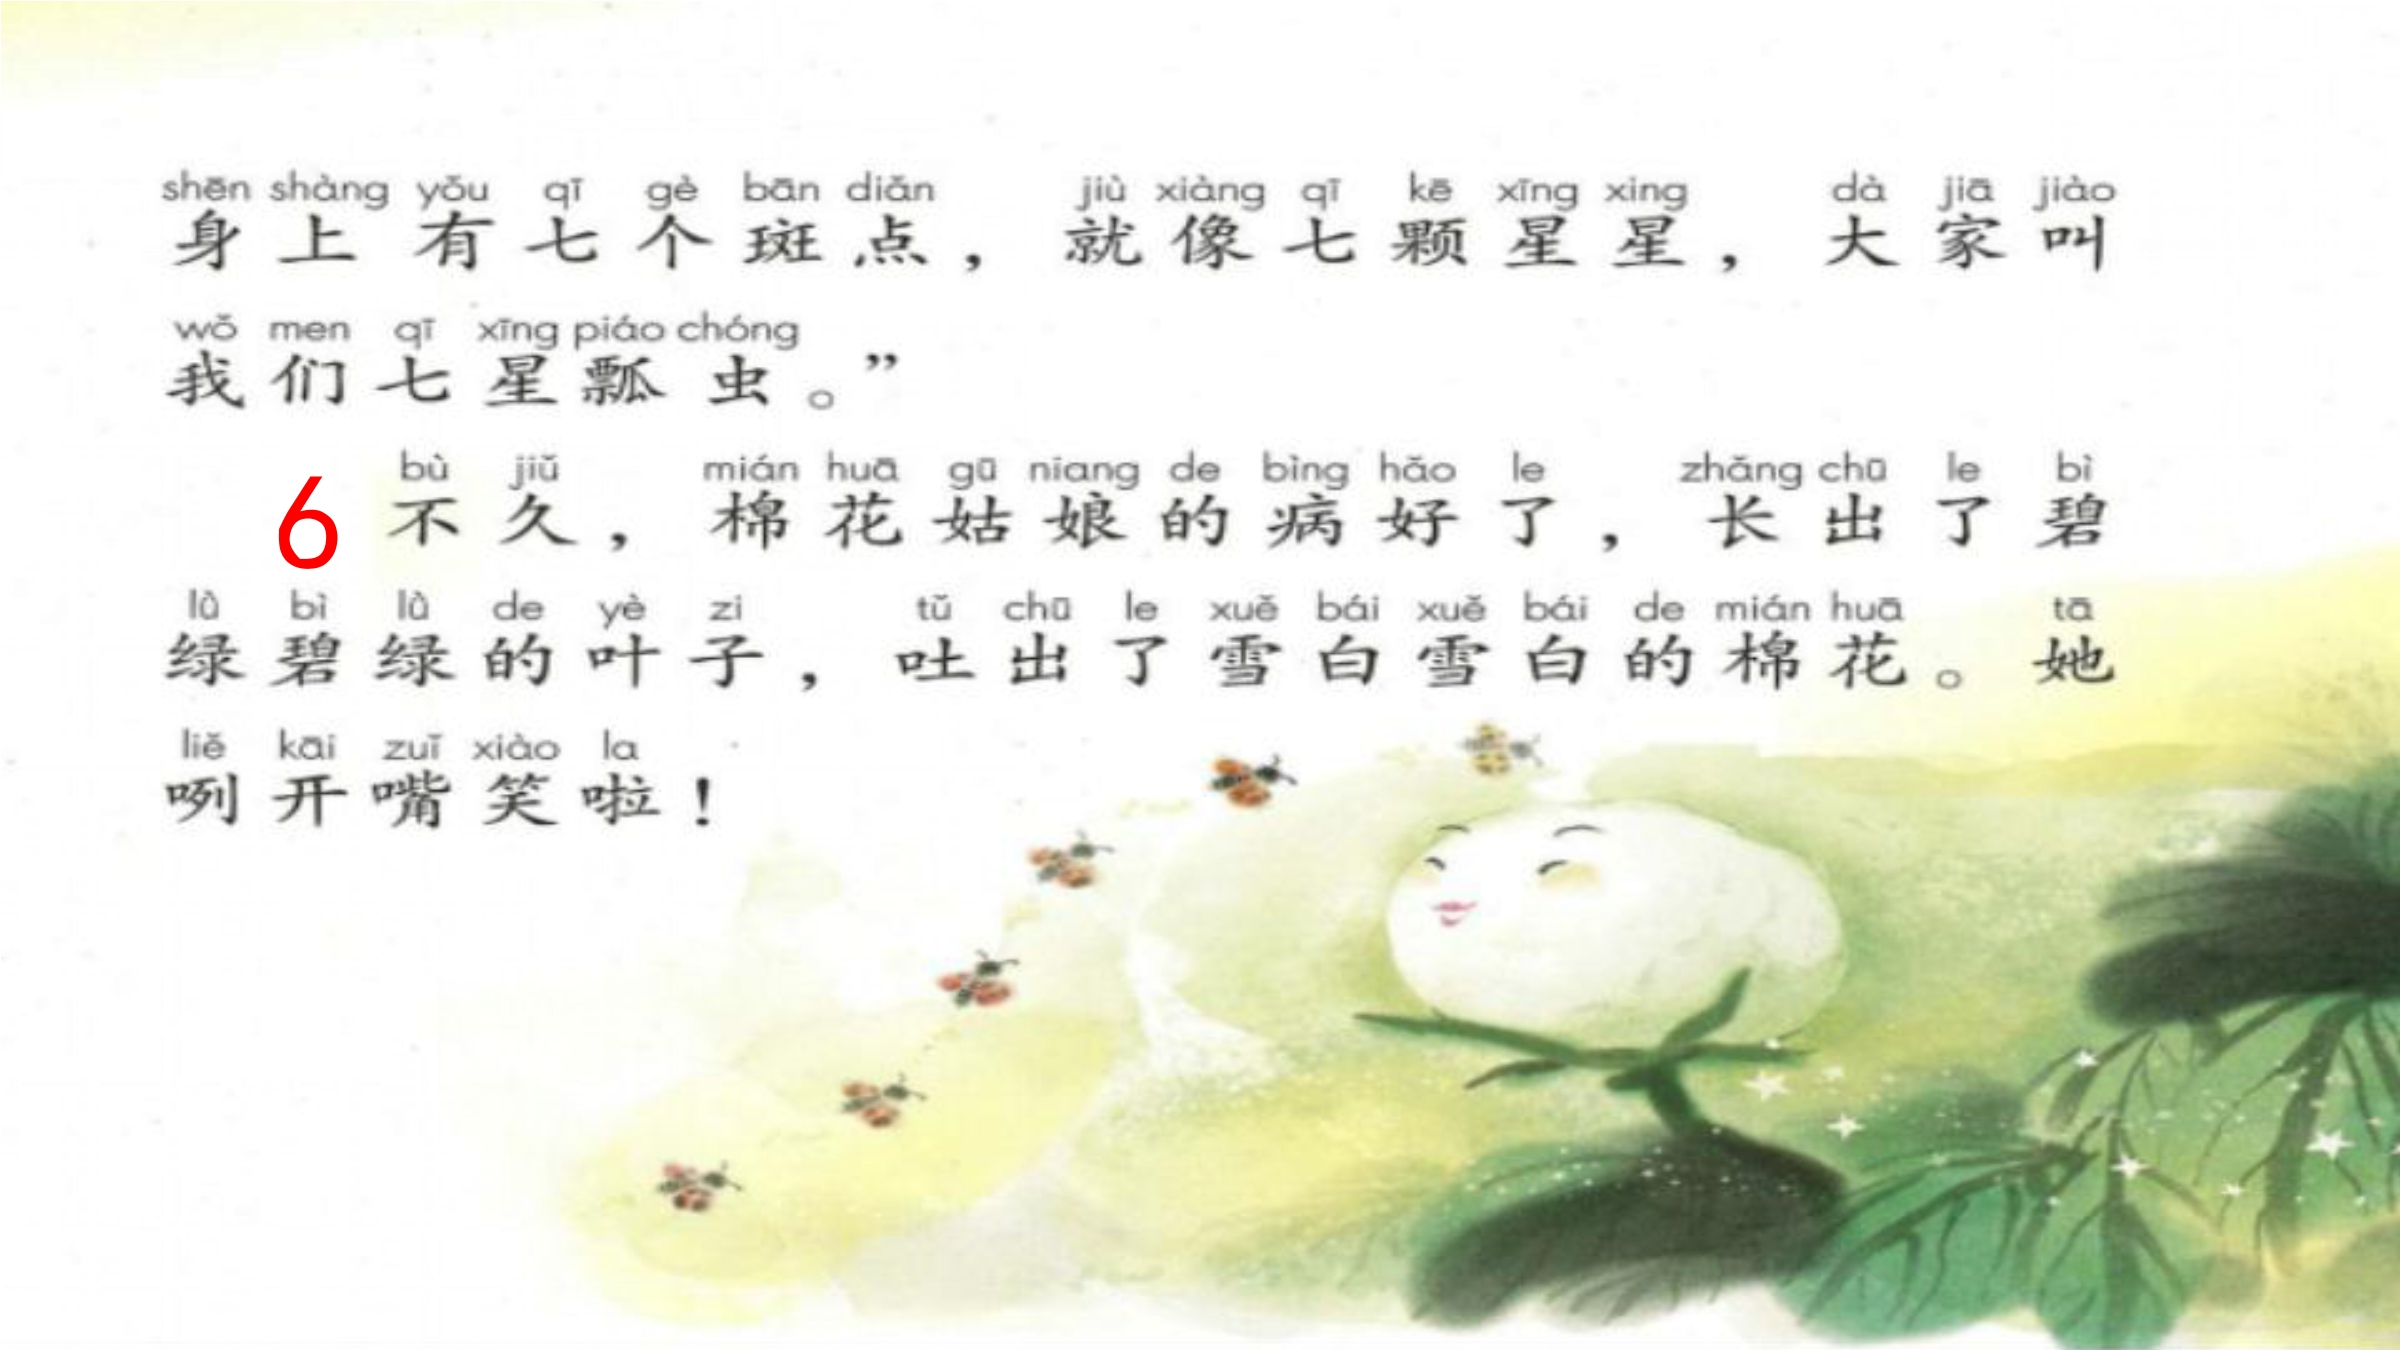 shēn shàng yǒu qī gè bān diǎn jiù xiàng qī kē xīng xing dà jiā jiào
身上有七个斑点，就像七颗星星，大家叫
wǒ men qī xīng piáo chóng
我们七星瓢虫。”
bù jiǔ mián huā gū niang de bìng hǎo le zhǎng chū le bì
6 不久，棉花姑娘的病好了，长出了碧
lǜ bì lǜ de yè zi tǔ chū le xuě bái xuě bái de mián huā tā
绿碧绿的叶子，吐出了雪白雪白的棉花。她
liě kāi zuǐ xiào la
咧开嘴笑啦！